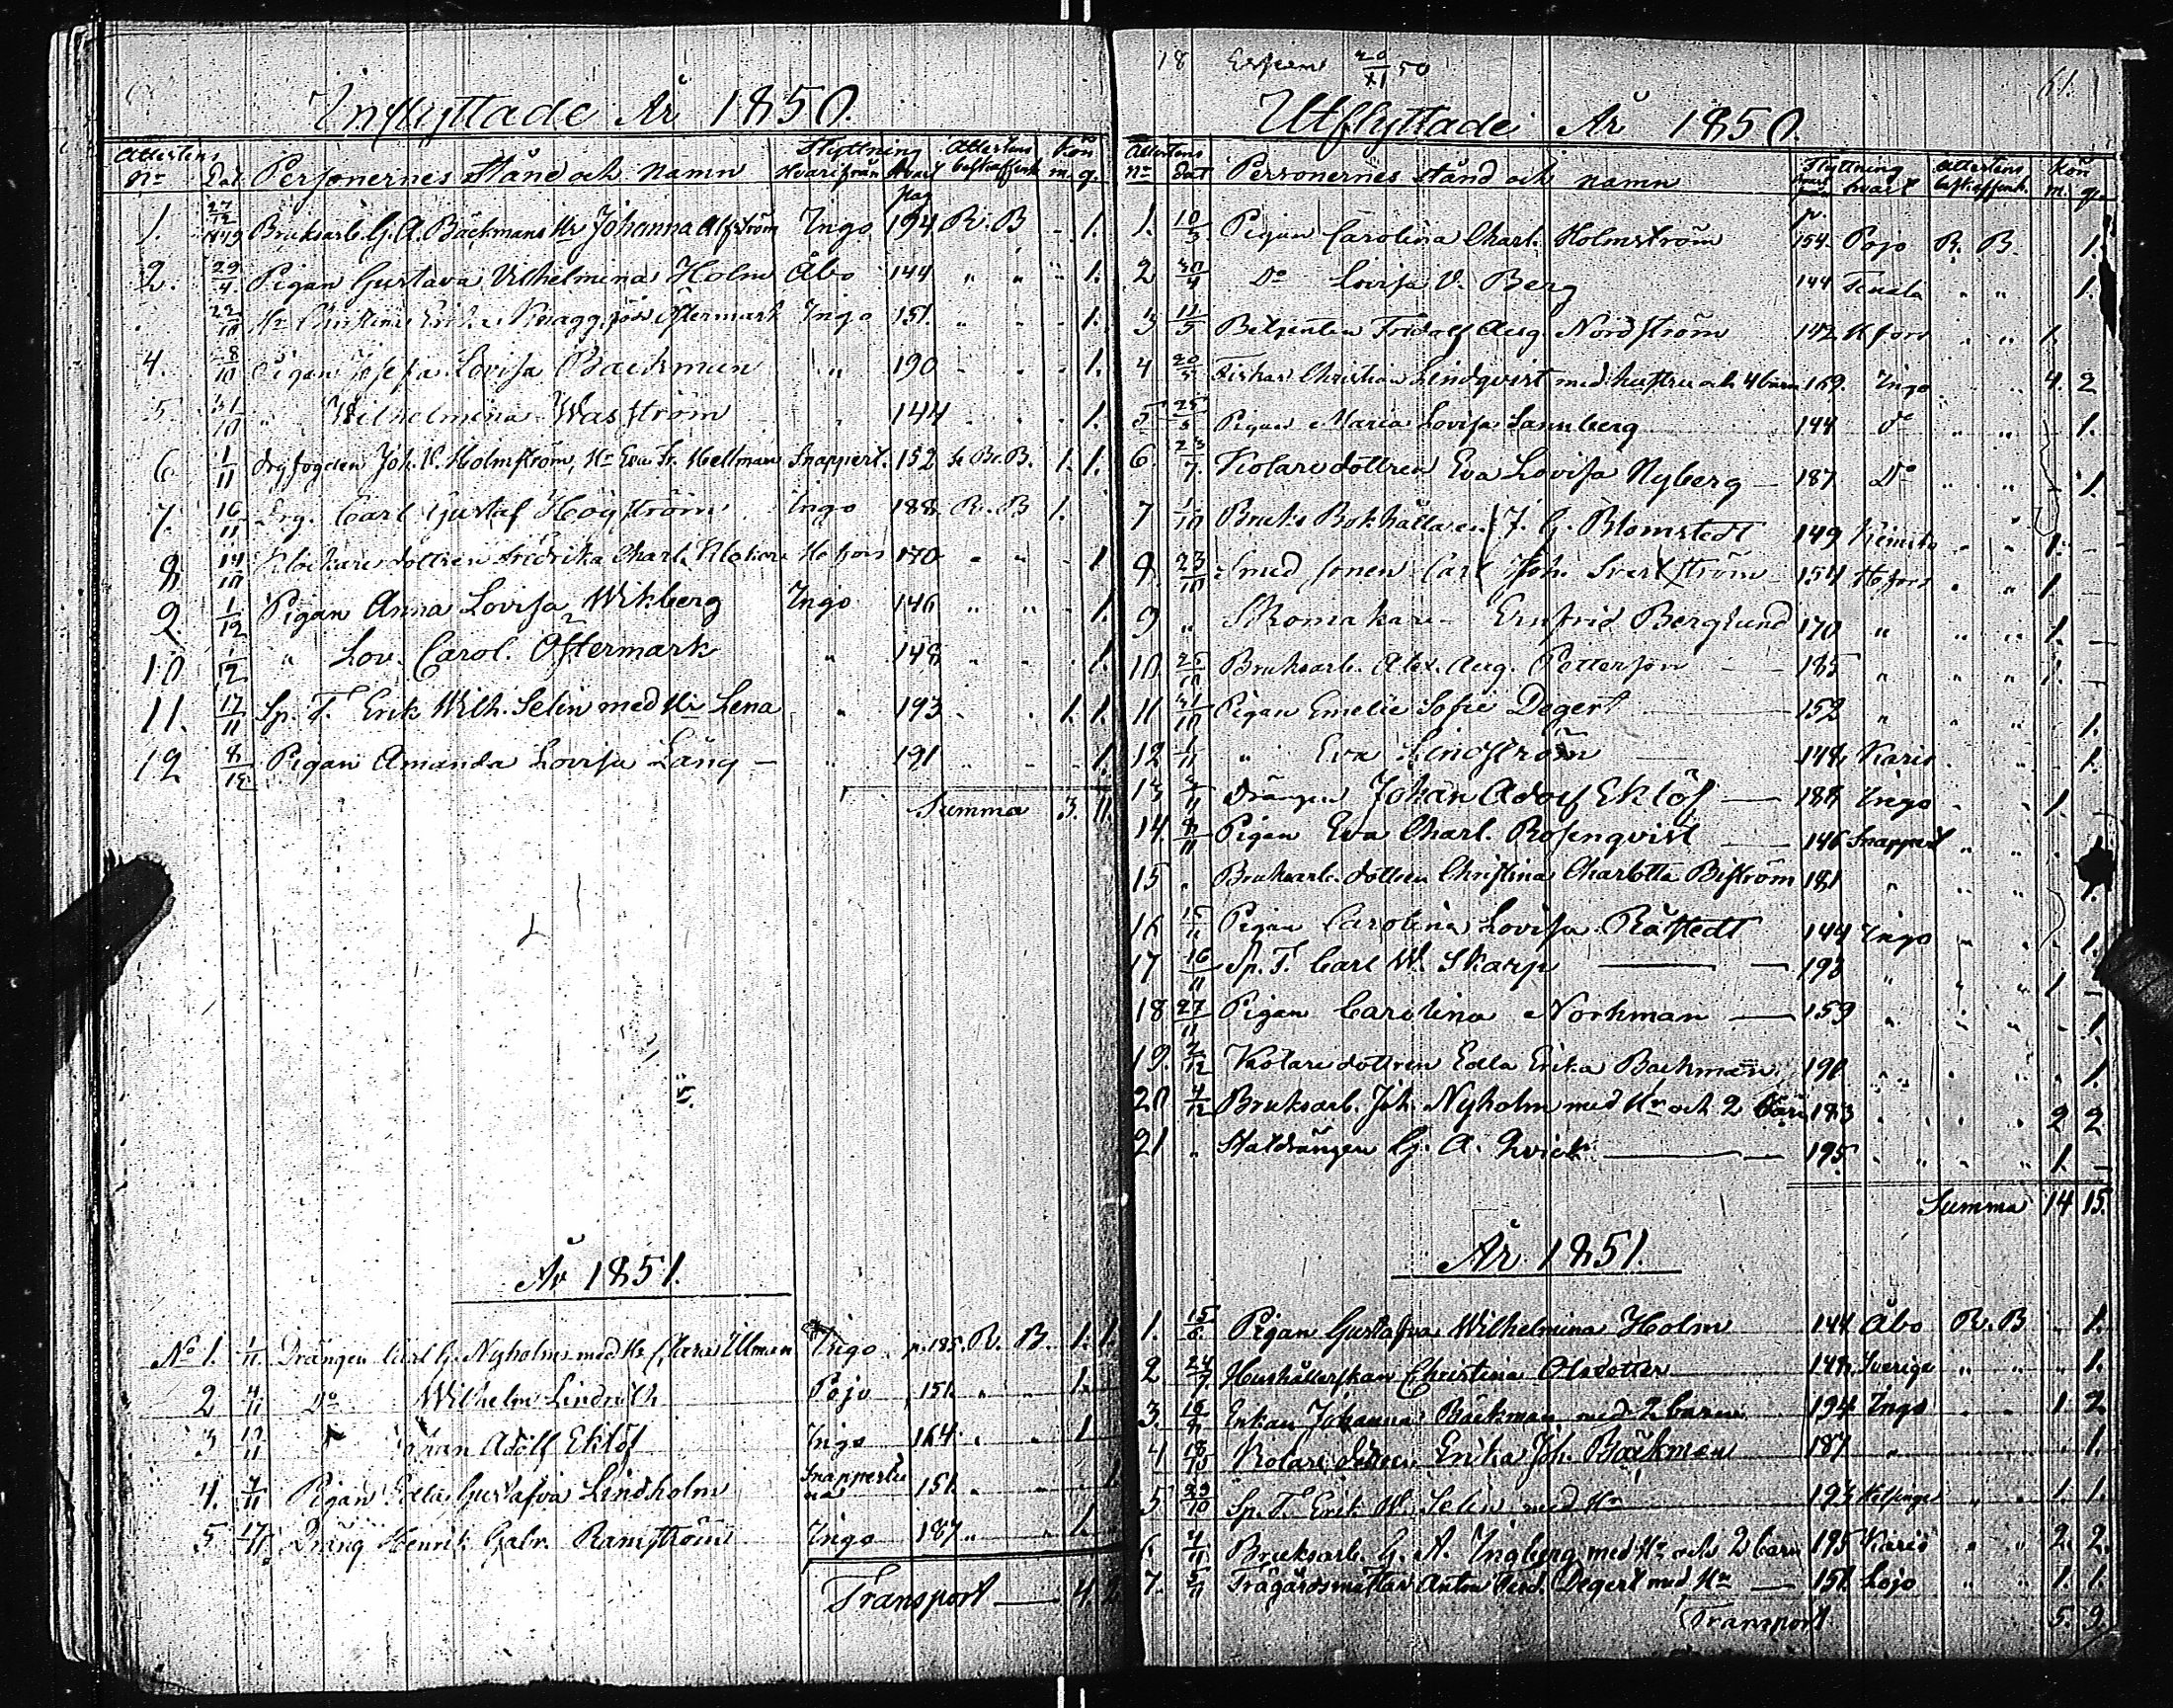 Inflyttade År 1850.
Attestens Flyttning Attestens Kön
No Dat. Personernes stånd och namn Hvarifrån Hvart pag beskaffenh. m. q.
1. 27/12 1849 Bruksarb. G. A. Bäckmans Hu Johanna Alfström Ingo 194 R. B - 1.
2. 29/4 Pigan Gustava Vilhelmina Holm Åbo 144 " " " 1.
22/10 Hu Christina Erika Östermark Ingo 151. " " - 1.
4. 8/10 Pigan Josefa Lovisa Backman " 190 - - 1.
5 31/10 " Wilhelmina Wasström " 144 " . . 1.
6 1/11 Joh. Holmström, Hu Eva Fr. Hellman Snappert. 152 R. B. 1. 1.
7. 16/11 Drg. Carl Gustaf Högström Ingo 188 R. B 1.
8 14/10 dottren Fredrika Charl. H:fors 170 " " - 1
9. 1/12 Pigan Anna Lovisa Wikberg Ingo 146 " " - 1.
10 1/12 " Lov. Carol. Östermark " 148 " . . 1.
11. 17/11 Sp. T. Erik Wilh. Selin med Hu Lena " 193 . . 1. 1.
12 8/12 Pigan Amanda Lovisa Lång - " 191 . . - 1.
Summa 3. 11.
År 1851.
No 1. 1/11 Drängen Carl G. Nyholm med Hu Maria Ullman Ingo p. 185. R. B. 1. 1.
2 4/11 Do Wilhelm Lindroth Pojo 151 " " 1.
3 12/11 Johan Adolf Eklöf Ingo 164 " " 1
4. 7/11 Pigan Gustafva Lindholm Snappertuna 151. " " 1
5 17/11 Dräng Henrik Gabr. Ramström Ingo 187 " " 1.
Transport — 4. 2
18 20/XI 50
61.
Utflyttade År 1850.
Attestens Flyttning Attestens Kön
No dat Personernes stånd och namn hvart beskaffenh. m. q.
1. 10/3 Pigan Carolina Charl. Holmström 154. Pojo R. B. 1.
2 30/4 Do Lovisa V. Berg 144 Tenala " " 1.
3 11/5 Betjenten Fridolf Aug. Nordström 142 H:fors . " 1.
4 20/5 Fiskar. Christian Lindqvist med hustru och 4 barn 169. Ingo . . 4. 2
5 25/5 Pigan Maria Lovisa Sannberg 144 do . " 1.
6. 23/7. Kolare dottren Eva Lovisa Nyberg — 187 Do " " - 1.
7 1/10 Bruks Bokhållaren J. G. Blomstedt 149 Kimito " " 1. -
8. 23/10 Smed sonen Carl Joh. Svartström 154 H:fors . " 1
9 " Skomakare Ernfrid Berglund 170 " " " 1. -
10 25/10 Bruksarb. Alex. Aug. Petterson — 185 " " " 1. -
11 31/10 Pigan Emelie Sofie Degert — 152 " " " 1.
12 1/11 " Eva Lindström — 148, Karis . " - 1.
13 7/11 Drängen Johan Adolf Eklöf — 188 Ingo . " 1.
14. 8/11 Pigan Eva Charl. Rosenqvist — 146 Snappert " " -
15 " Bruksarb. dottren Christina Charlotta Biström 181 " " 1.
16 15/11 Pigan Carolina Lovisa Råstedt 144 Ingo " . 1.
17 16/11 Sp. T. Carl W. Skarp — 193 " . " 1 -
18 27/11 Pigan Carolina Norkman — 159 " " " . 1
19. 2/12 Kolare dottren Edla Erika Backman 190 " . " . 1
20 4/12 Bruksarb. Joh. Nyholm med Hu och 2 barn 183 " . " 2 2
21 " Stalldrängen G. A. Kvick — 195 " " " 1. -
Summa 14 15.
År 1851.
1. 15/6 Pigan Gustafva Wilhelmina Holm 144 Åbo R. B - 1.
2 24/7. Hushållerskan Christina Olsdotter 148. Sverige " " " 1.
3. 16/8 Enkan Johanna Bäckman med 2 barn 194 Ingo " " 1 2
4 18/10 Kolare dottren Erika Joh. Bäckman 187 " . . . 1.
5 23/10 Sp. T. Erik W. Selin med Hu 193 Helsinge " . 1. 1.
6. 4/11 Bruksarb. G. A. Ingberg med Hu och 2 barn 195 Karis " " 2. 2.
7. 5/11 Trägårdsmästar Anton Ferd. Degert med Hu — 151 Lojo " " 1. 1.
Transport 5. 9.